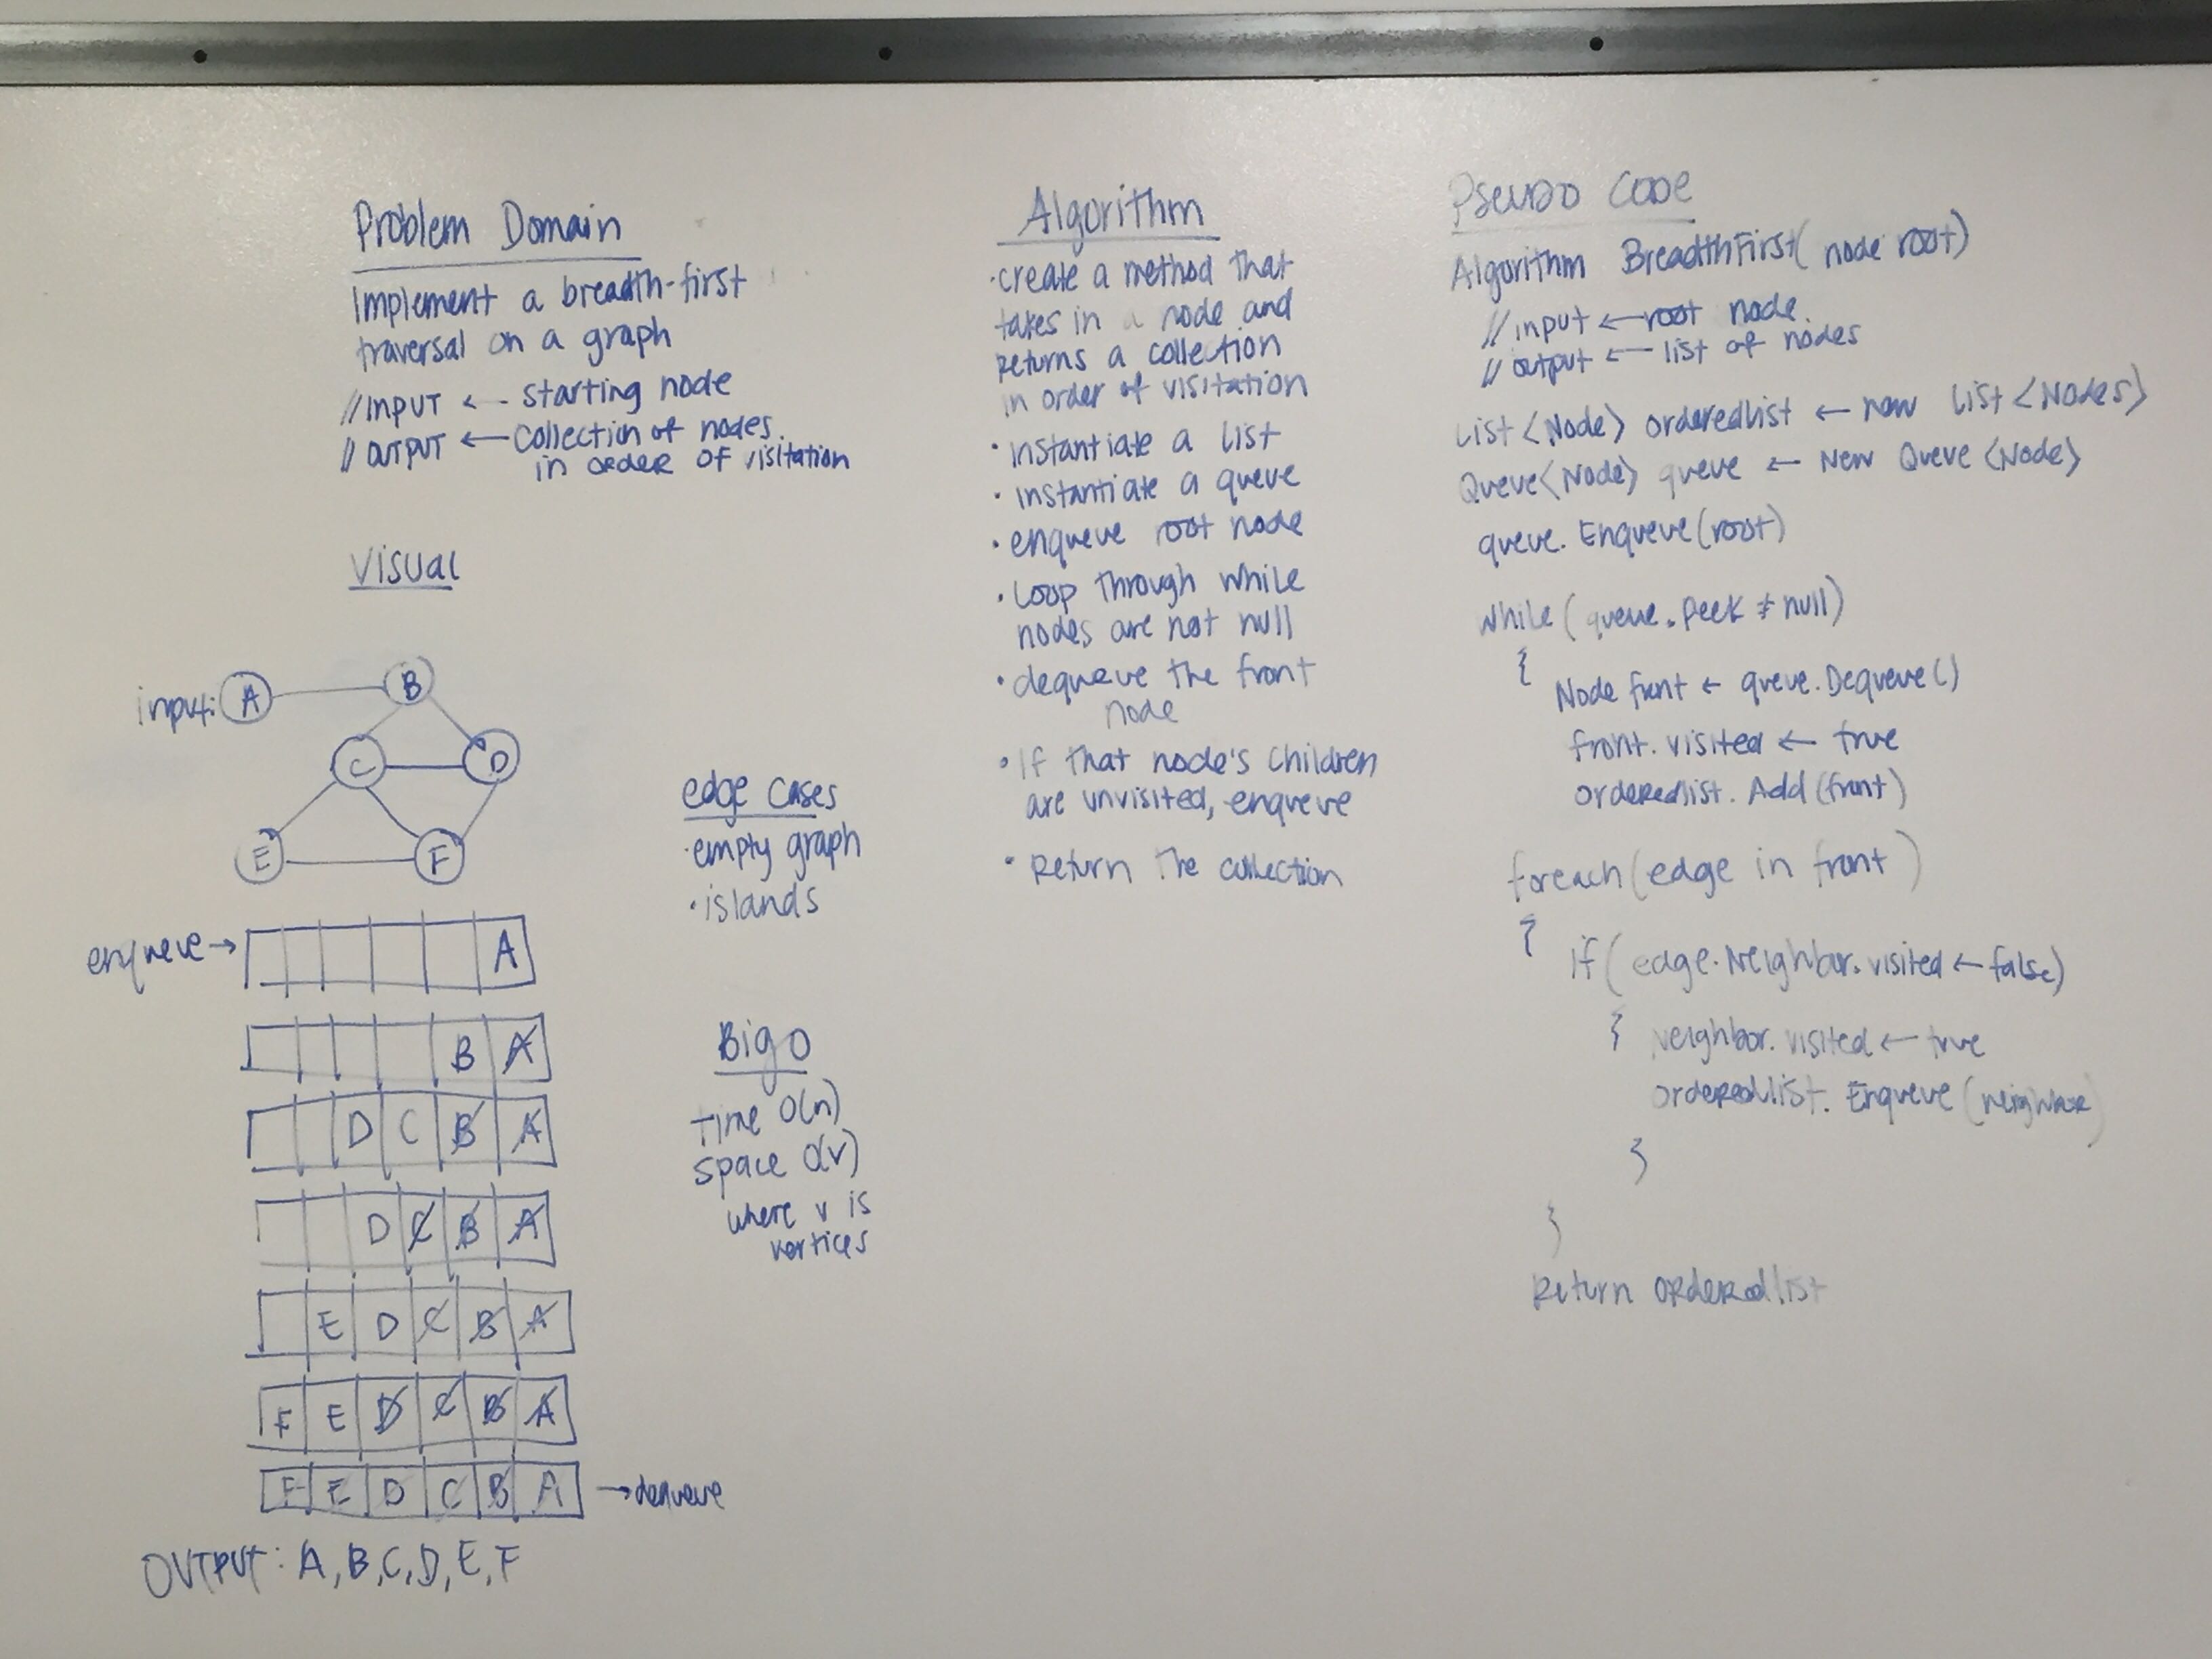 Problem Domain
Implement a breadth-first
traversal on a graph
//INPUT ← starting node
//OUTPUT ← collection of nodes
in order of visitation
Visual
input: A
B
C
D
E
F
enqueue →
A
B A
D C B A
D C B A
E D C B A
F E D C B A
F E D C B A → dequeue
OUTPUT: A, B, C, D, E, F
edge cases
· empty graph
· islands
Big O
time O(n)
space O(v)
where v is
vertices
Algorithm
· create a method that
takes in a node and
returns a collection
in order of visitation
· instantiate a list
· instantiate a queue
· enqueue root node
· Loop through while
nodes are not null
· dequeue the front
node
· If that node's children
are unvisited, enqueue
· Return the collection
Pseudo Code
Algorithm BreadthFirst( node root)
// input ← root node.
// output ← list of nodes
List <Node> orderedlist ← new List <Nodes>
Queue <Node> queue ← New Queue <Node>
queue. Enqueue (root)
while ( queue. Peek ≠ null)
{
Node front ← queue. Dequeue ()
front. visited ← true
orderedlist. Add (front)
foreach (edge in front )
{
if ( edge. Neighbor. visited ← false)
{ neighbor. visited ← true
orderedlist. Enqueue (neighbor)
}
}
Return orderedlist